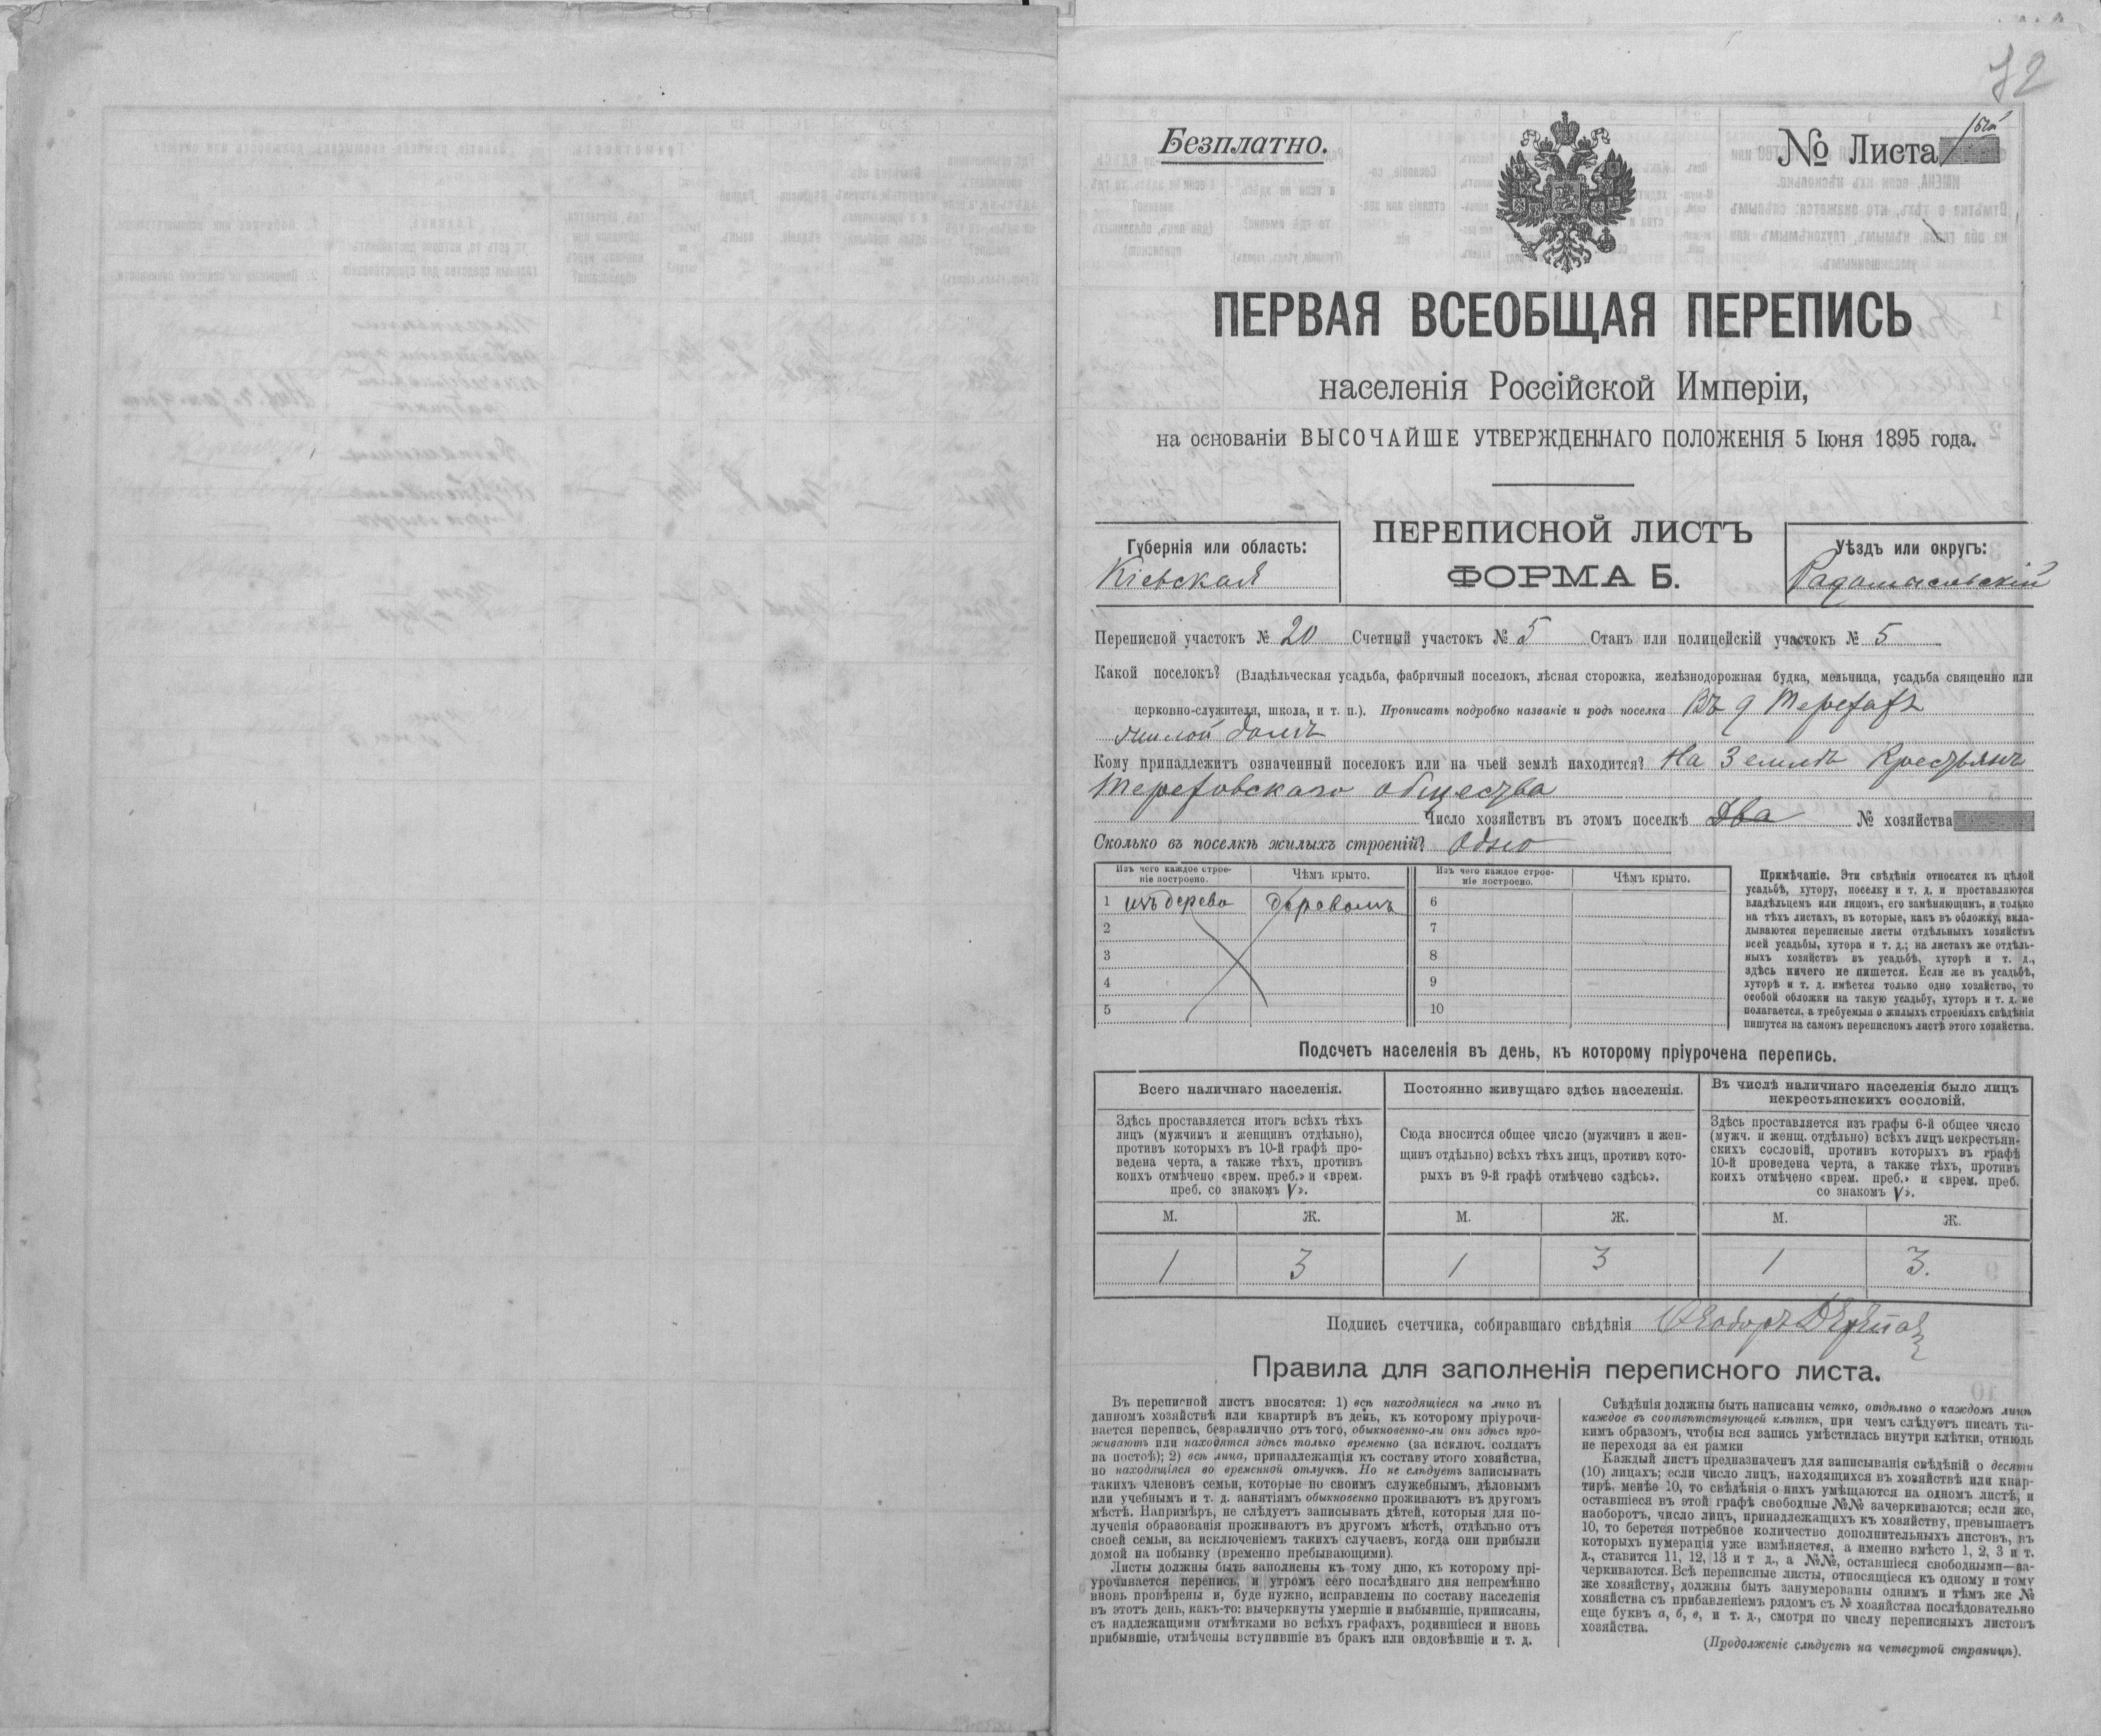 72
Безплатно.
№ Листа
ПЕРВАЯ ВСЕОБЩАЯ ПЕРЕПИСЬ
населенія Россійской Имперіи,
на основаніи ВЫСОЧАЙШЕ УТВЕРЖДЕННАГО ПОЛОЖЕНІЯ 5 Іюня 1895 года.
Губернія или область:
Кіевская
ПЕРЕПИСНОЙ ЛИСТЪ
ФОРМА Б.
Уѣздъ или округъ:
Радомысльскій
Переписной участокъ № 20 Счетный участокъ № 5 Станъ или полицейскій участокъ № 5
Какой поселокъ? (Владѣльческая усадьба, фабричный поселокъ, лѣсная сторожка, желѣзнодорожная будка, мельница, усадьба священно или
церковно-служителя, школа, и т. п.). Прописать подробно названіе и родъ поселка Въ д
жилой домъ
Кому принадлежитъ означенный поселокъ или на чьей землѣ находится? На Землѣ Крестьянъ
общества
Число хозяйствъ въ этомъ поселкѣ Два № хозяйства
Сколько въ поселкѣ жилыхъ строеній? Одно
Изъ чего каждое строе-
ніе построено.
Чѣмъ крыто.
Изъ чего каждое строе-
ніе построено.
Чѣмъ крыто.
1 изъ дерева деревомъ 6
2 7
3 8
4 9
5 10
Примѣчаніе. Эти свѣдѣнія относятся къ цѣлой
усадьбѣ, хутору, поселку и т. д. и проставляются
владѣльцемъ или лицомъ, его замѣняющимъ, и только
на тѣхъ листахъ, въ которые, какъ въ обложку, вкла-
дываются переписные листы отдѣльныхъ хозяйствъ
всей усадьбы, хутора и т. д.; на листахъ же отдѣль-
ныхъ хозяйствъ въ усадьбѣ, хуторѣ и т. д.,
здѣсь ничего не пишется. Если же въ усадьбѣ,
хуторѣ и т. д. имѣется только одно хозяйство, то
особой обложки на такую усадьбу, хуторъ и т. д. не
полагается, а требуемыя о жилыхъ строеніяхъ свѣдѣнія
пишутся на самомъ переписномъ листѣ этого хозяйства.
Подсчетъ населенія въ день, къ которому пріурочена перепись.
Всего наличнаго населенія.
Здѣсь проставляется итогъ всѣхъ тѣхъ
лицъ (мужчинъ и женщинъ отдѣльно),
противъ которыхъ въ 10-й графѣ про-
ведена черта, а также тѣхъ, противъ
коихъ отмѣчено «врем. преб.» и «врем.
преб. со знакомъ V».
Постоянно живущаго здѣсь населенія.
Сюда вносится общее число (мужчинъ и жен-
щинъ отдѣльно) всѣхъ тѣхъ лицъ, противъ кото-
рыхъ въ 9-й графѣ отмѣчено «здѣсь».
Въ числѣ наличнаго населенія было лицъ
некрестьянскихъ сословій.
Здѣсь проставляется изъ графы 6-й общее число
(мужч. и женщ. отдѣльно) всѣхъ лицъ некрестьян-
скихъ сословій, противъ которыхъ въ графѣ
10-й проведена черта, а также тѣхъ, противъ
коихъ отмѣчено «врем. преб.» и «врем. преб.
со знакомъ V».
М. Ж. М. Ж. М. Ж.
1 3 1 3 1 3.
Подпись счетчика, собиравшаго свѣдѣнія
Правила для заполненія переписного листа.
Въ переписной листъ вносятся: 1) всѣ находящіеся на лицо въ
данномъ хозяйствѣ или квартирѣ въ день, къ которому пріурочи-
вается перепись, безразлично отъ того, обыкновенно-ли они здѣсь про-
живаютъ или находятся здѣсь только временно (за исключ. солдатъ
на постоѣ); 2) всѣ лица, принадлежащія къ составу этого хозяйства,
но находящіяся во временной отлучкѣ. Но не слѣдуетъ записывать
такихъ членовъ семьи, которые по своимъ служебнымъ, дѣловымъ
или учебнымъ и т. д. занятіямъ обыкновенно проживаютъ въ другомъ
мѣстѣ. Напримѣръ, не слѣдуетъ записывать дѣтей, которыя для по-
лученія образованія проживаютъ въ другомъ мѣстѣ, отдѣльно отъ
своей семьи, за исключеніемъ такихъ случаевъ, когда они прибыли
домой на побывку (временно пребывающими).
Листы должны быть заполнены къ тому дню, къ которому прі-
урочивается перепись, и утромъ сего послѣдняго дня непремѣнно
вновь провѣрены и, буде нужно, исправлены по составу населенія
въ этотъ день, какъ-то: вычеркнуты умершіе и выбывшіе, приписаны,
съ надлежащими отмѣтками во всѣхъ графахъ, родившіеся и вновь
прибывшіе, отмѣчены вступившіе въ бракъ или овдовѣвшіе и т. д.
Свѣдѣнія должны быть написаны четко, отдѣльно о каждомъ лицѣ
каждое въ соотвѣтствующей клѣткѣ, при чемъ слѣдуетъ писать та-
кимъ образомъ, чтобы вся запись умѣстилась внутри клѣтки, отнюдь
не переходя за ея рамки
Каждый листъ предназначенъ для записыванія свѣдѣній о десяти
(10) лицахъ; если число лицъ, находящихся въ хозяйствѣ или квар-
тирѣ, менѣе 10, то свѣдѣнія о нихъ умѣщаются на одномъ листѣ, и
оставшіеся въ этой графѣ свободные №№ зачеркиваются; если же,
наоборотъ, число лицъ, принадлежащихъ къ хозяйству, превышаетъ
10, то берется потребное количество дополнительныхъ листовъ, въ
которыхъ нумерація уже измѣняется, а именно вмѣсто 1, 2, 3 и т.
д., ставится 11, 12, 13 и т д., а №№, оставшіеся свободными—за-
черкиваются. Всѣ переписные листы, относящіеся къ одному и тому
же хозяйству, должны быть занумерованы однимъ и тѣмъ же №
хозяйства съ прибавленіемъ рядомъ съ № хозяйства послѣдовательно
еще буквъ а, б, в, и т. д., смотря по числу переписныхъ листовъ
хозяйства.
(Продолженіе слѣдуетъ на четвертой страницѣ).